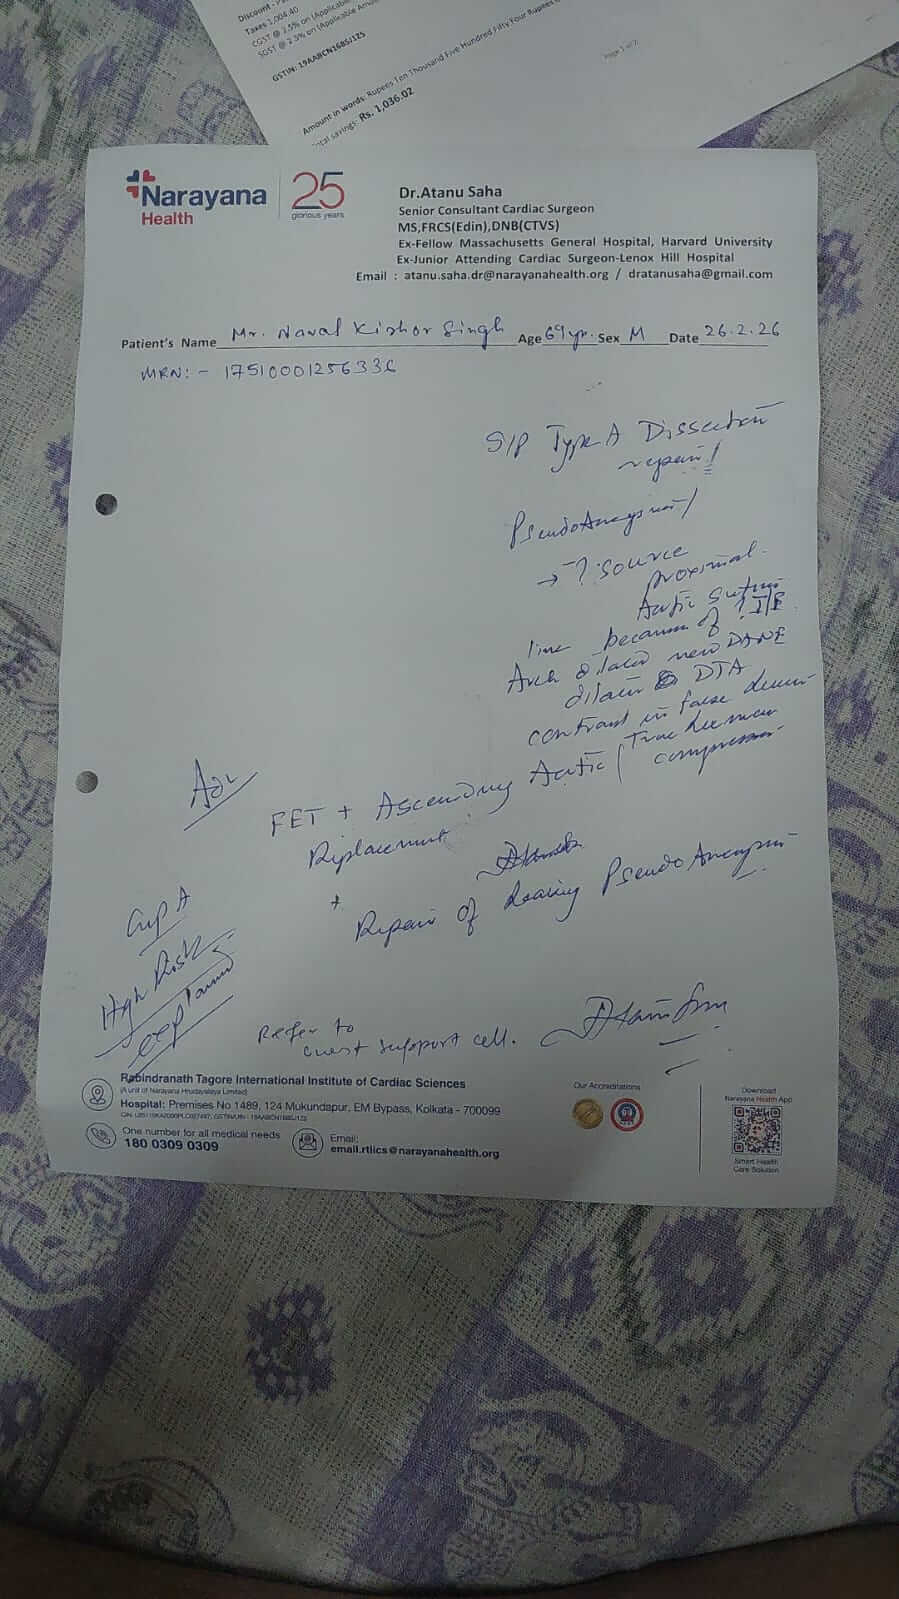 Discount -
Taxes 1,004.40
CGST @ 2.5% on (Applicable
SGST @ 2.5% on (Applicable Amou
GSTIN: 19AABCN1685J1Z5
Amount in words: Rupees Ten Thousand Five Hundred Fifty Four Rupees
savings: Rs. 1,036.02
Page 1 of
Narayana
Health
25
glorious years
Dr.Atanu Saha
Senior Consultant Cardiac Surgeon
MS,FRCS(Edin),DNB(CTVS)
Ex-Fellow Massachusetts General Hospital, Harvard University
Ex-Junior Attending Cardiac Surgeon-Lenox Hill Hospital
Email : atanu.saha.dr@narayanahealth.org / dratanusaha@gmail.com
Patient's Name Mr. Naval Kishor Singh Age 69 yr. Sex M Date 26.2.26
MRN:- 17510001256336
S/P Type A Dissection
repair
Pseudo Aneurysm
→ ? Source
proximal
Aortic suture
line because of ?
Arch dilated new
DTA
contrast in false lumen
True lumen
compression
Adv
FET + Ascending Aortic
Replacement
+
Repair of leaking Pseudo Aneurysm
Grp A
High Risk
explained
Refer to
guest support cell.
Rabindranath Tagore International Institute of Cardiac Sciences
(A unit of Narayana Hrudayalaya Limited)
Hospital: Premises No 1489, 124 Mukundapur, EM Bypass, Kolkata - 700099
One number for all medical needs
180 0309 0309
Email:
email.rtiics@narayanahealth.org
Our Accreditations
Download
Narayana Health App
Smart Health
Care Solution